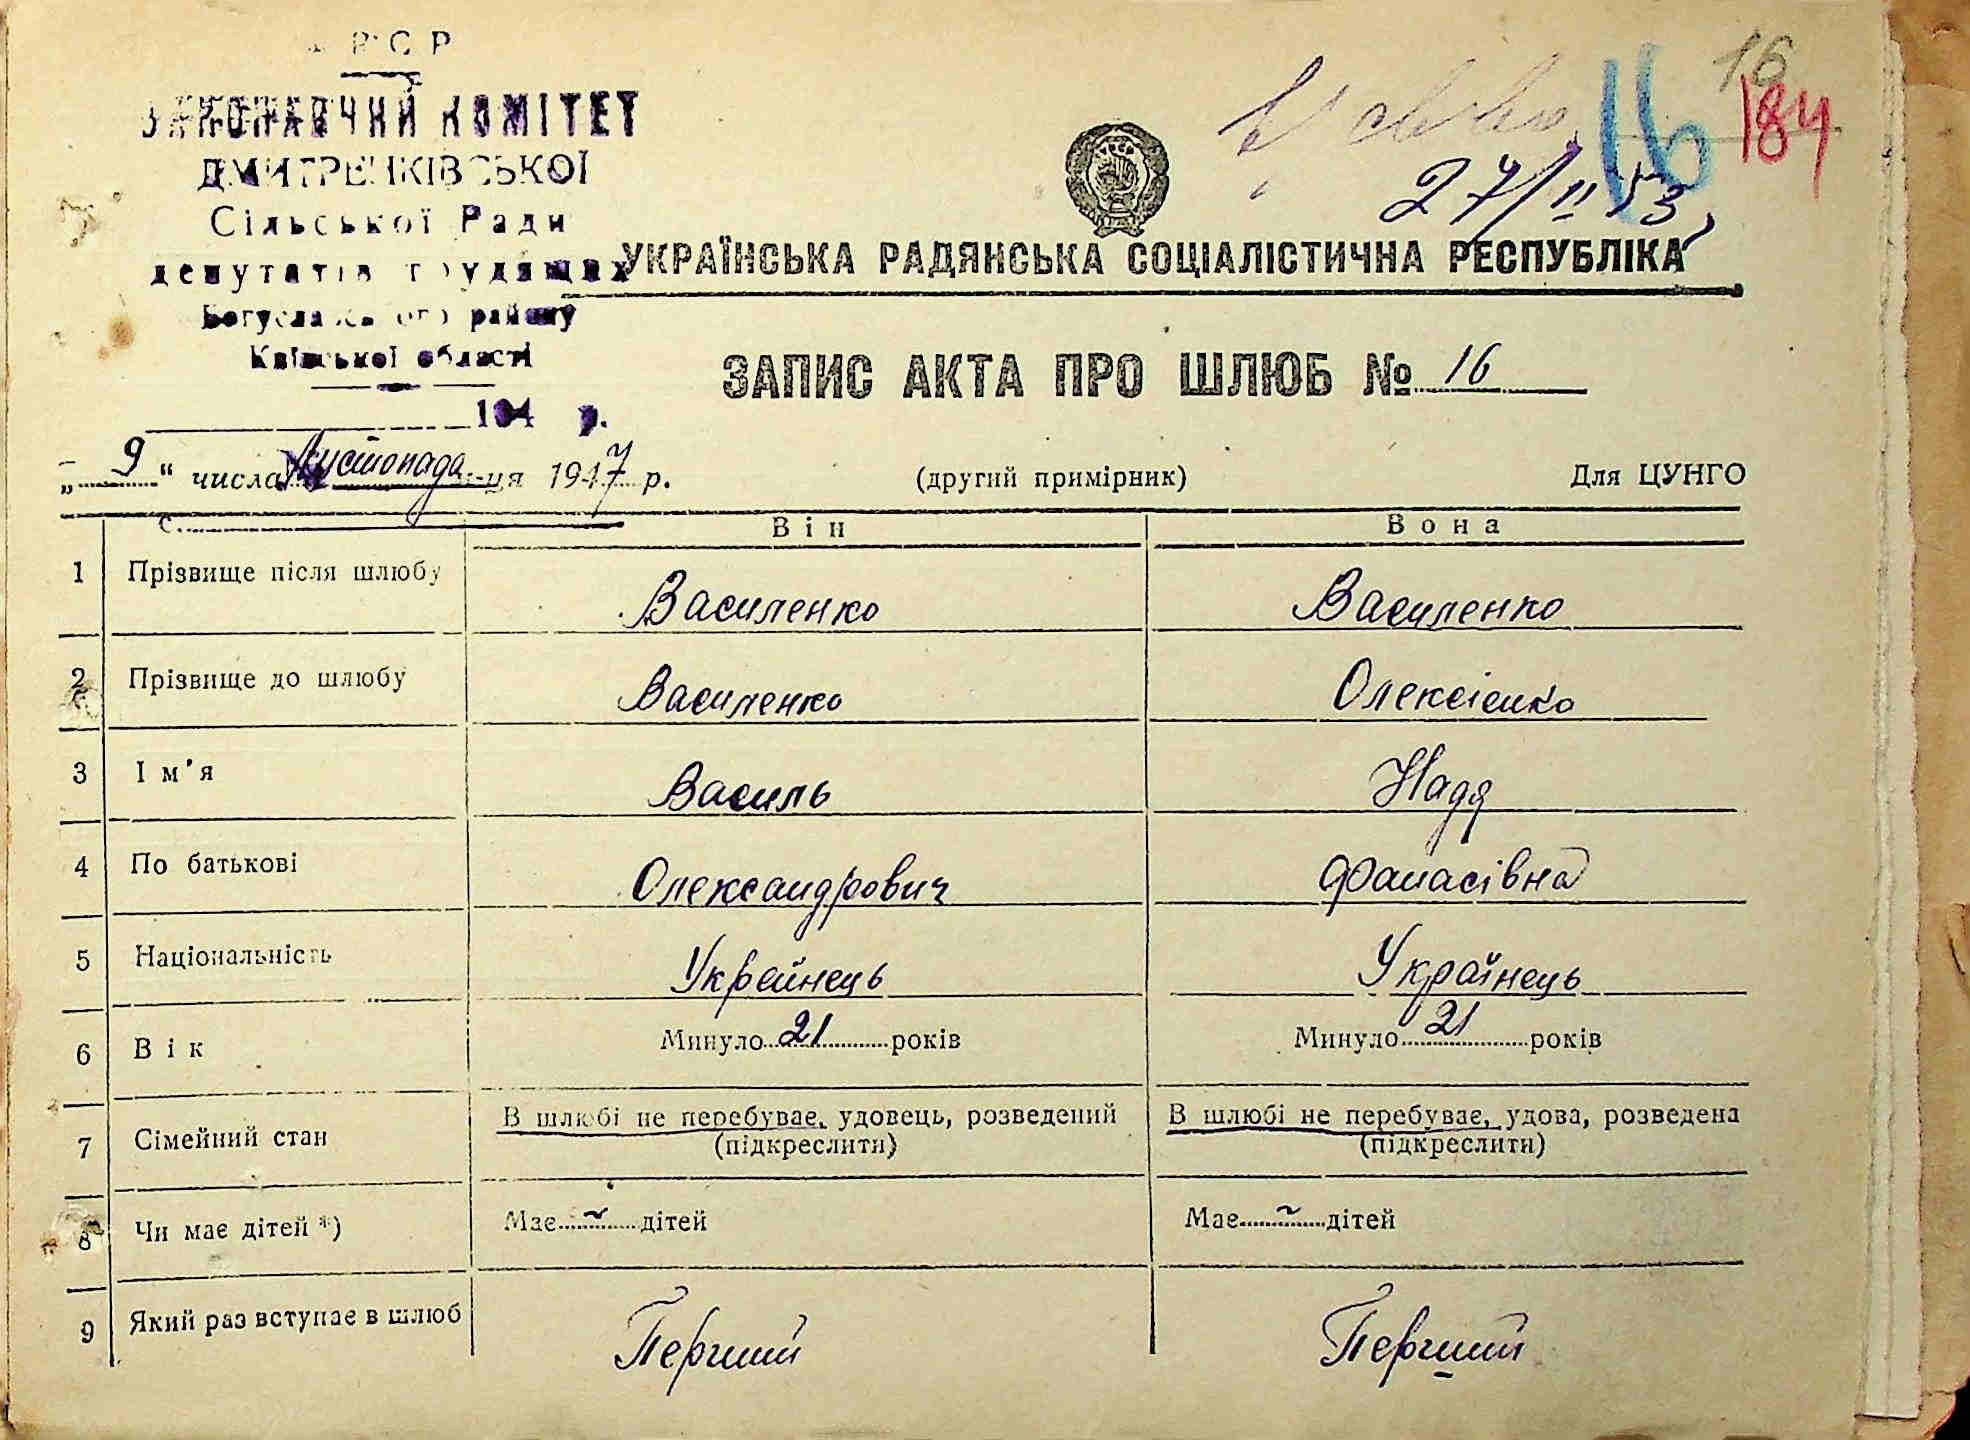 УРСР
ВИКОНАВЧИЙ КОМІТЕТ
ДМИТРЕНКІВСЬКОЇ
Сільської Ради
депутатів трудящих
Богуславського району
Київської області
194 р.
16
184
16
27/II 53
УКРАЇНСЬКА РАДЯНСЬКА СОЦІАЛІСТИЧНА РЕСПУБЛІКА
ЗАПИС АКТА ПРО ШЛЮБ № 16
„ 9 “ числа Листопада м-ця 1947 р. (другий примірник) Для ЦУНГО
Він Вона
1 Прізвище після шлюбу Василенко Василенко
2 Прізвище до шлюбу Василенко Олексієнко
3 Ім'я Василь Надя
4 По батькові Олександрович Фанасівна
5 Національність Украйнець Українець
6 Вік Минуло 21 років Минуло 21 років
7 Сімейний стан В шлюбі не перебуває, удовець, розведений В шлюбі не перебуває, удова, розведена
(підкреслити) (підкреслити)
8 Чи має дітей *) Має ~ дітей Має ~ дітей
9 Який раз вступає в шлюб Перший Перший